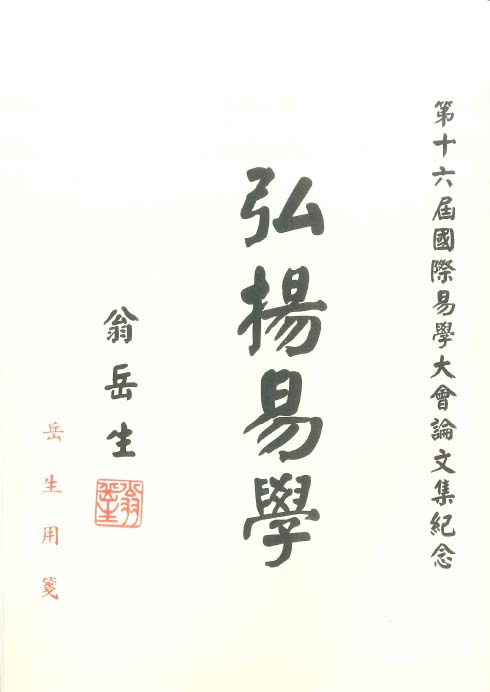 第十六屆國際易學大會論文集紀念
弘揚易學
翁岳生
翁岳生
岳生用箋